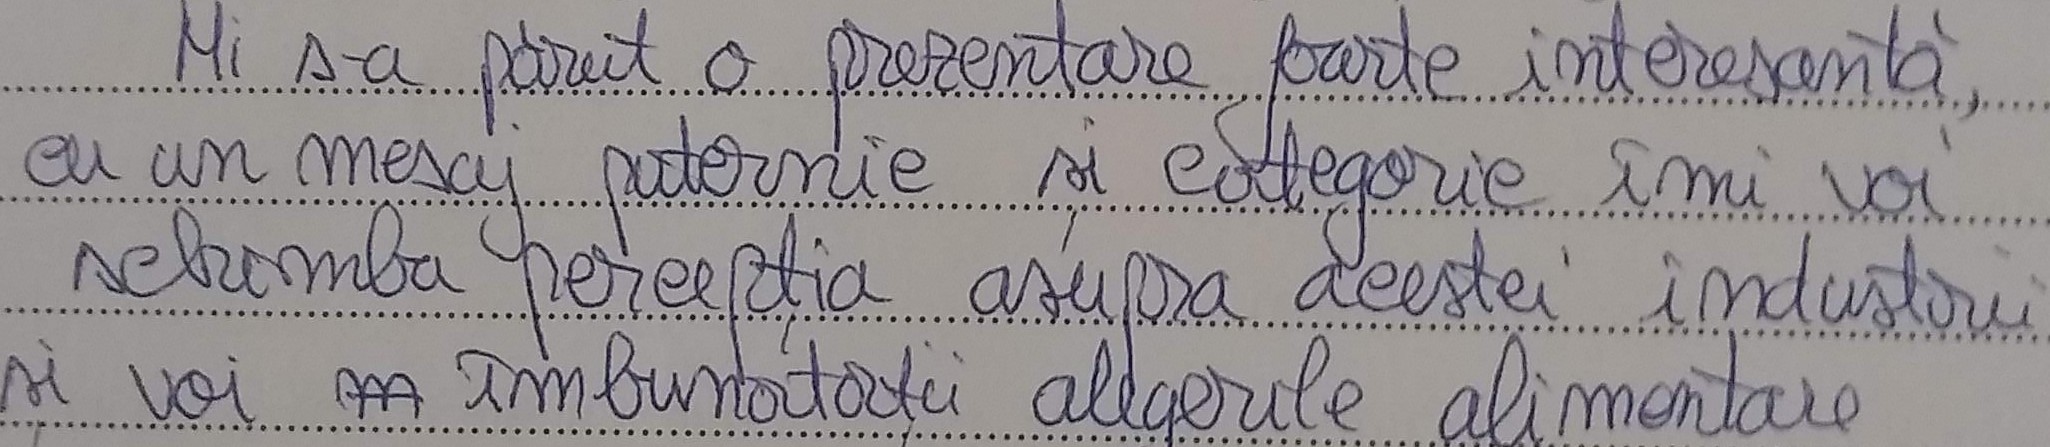 Mi s-a părut o prezentare foarte interesantă,
cu un mesaj puternic și categoric îmi voi
schimba percepția asupra acestei industrii
și voi îmbunătății alegerile alimentare